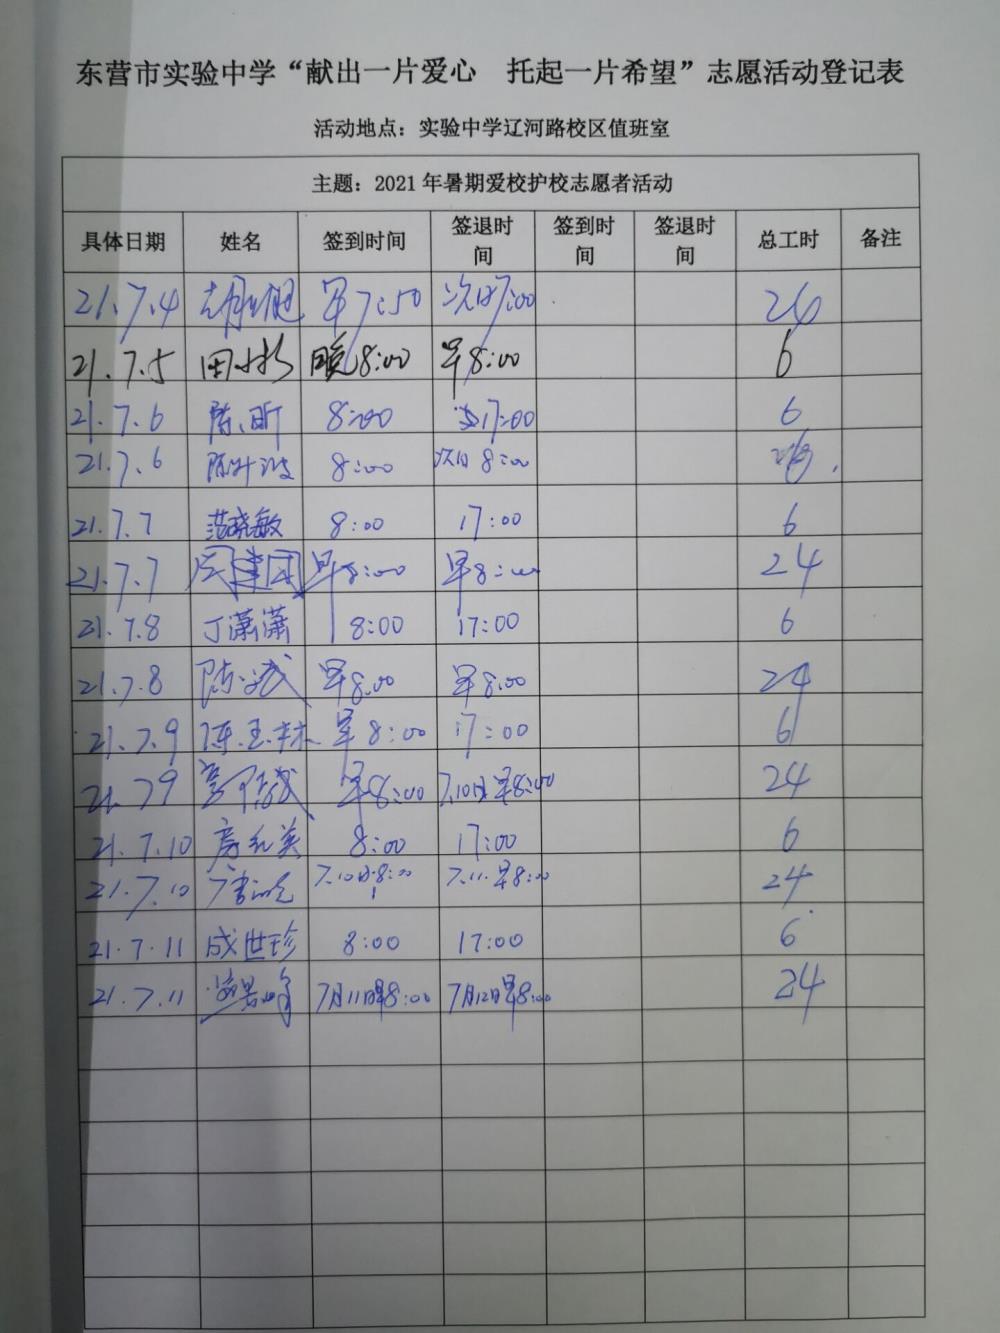 东营市实验中学“献出一片爱心 托起一片希望”志愿活动登记表
活动地点：实验中学辽河路校区值班室
主题：2021年暑期爱校护校志愿者活动
具体日期 姓名 签到时间 签退时间 签到时间 签退时间 总工时 备注
21.7.4 早7:50 次日7:00 24
21.7.5 田彬 晚8:00 早8:00 6
21.7.6 陈昕 8:00 17:00 6
21.7.6 8:00 次日8:00
21.7.7 范晓敏 8:00 17:00 6
21.7.7 周建国 早8:00 早8:00 24
21.7.8 丁潇潇 8:00 17:00 6
21.7.8 早8:00 早8:00 24
21.7.9 陈玉林 早8:00 17:00 6
21.79 早8:00 7.10日早8:00 24
21.7.10 8:00 17:00 6
21.7.10 7.10日8:00 7.11.早8:00 24
21.7.11 成世珍 8:00 17:00 6
21.7.11 7月11日早8:00 7月12日早8:00 24